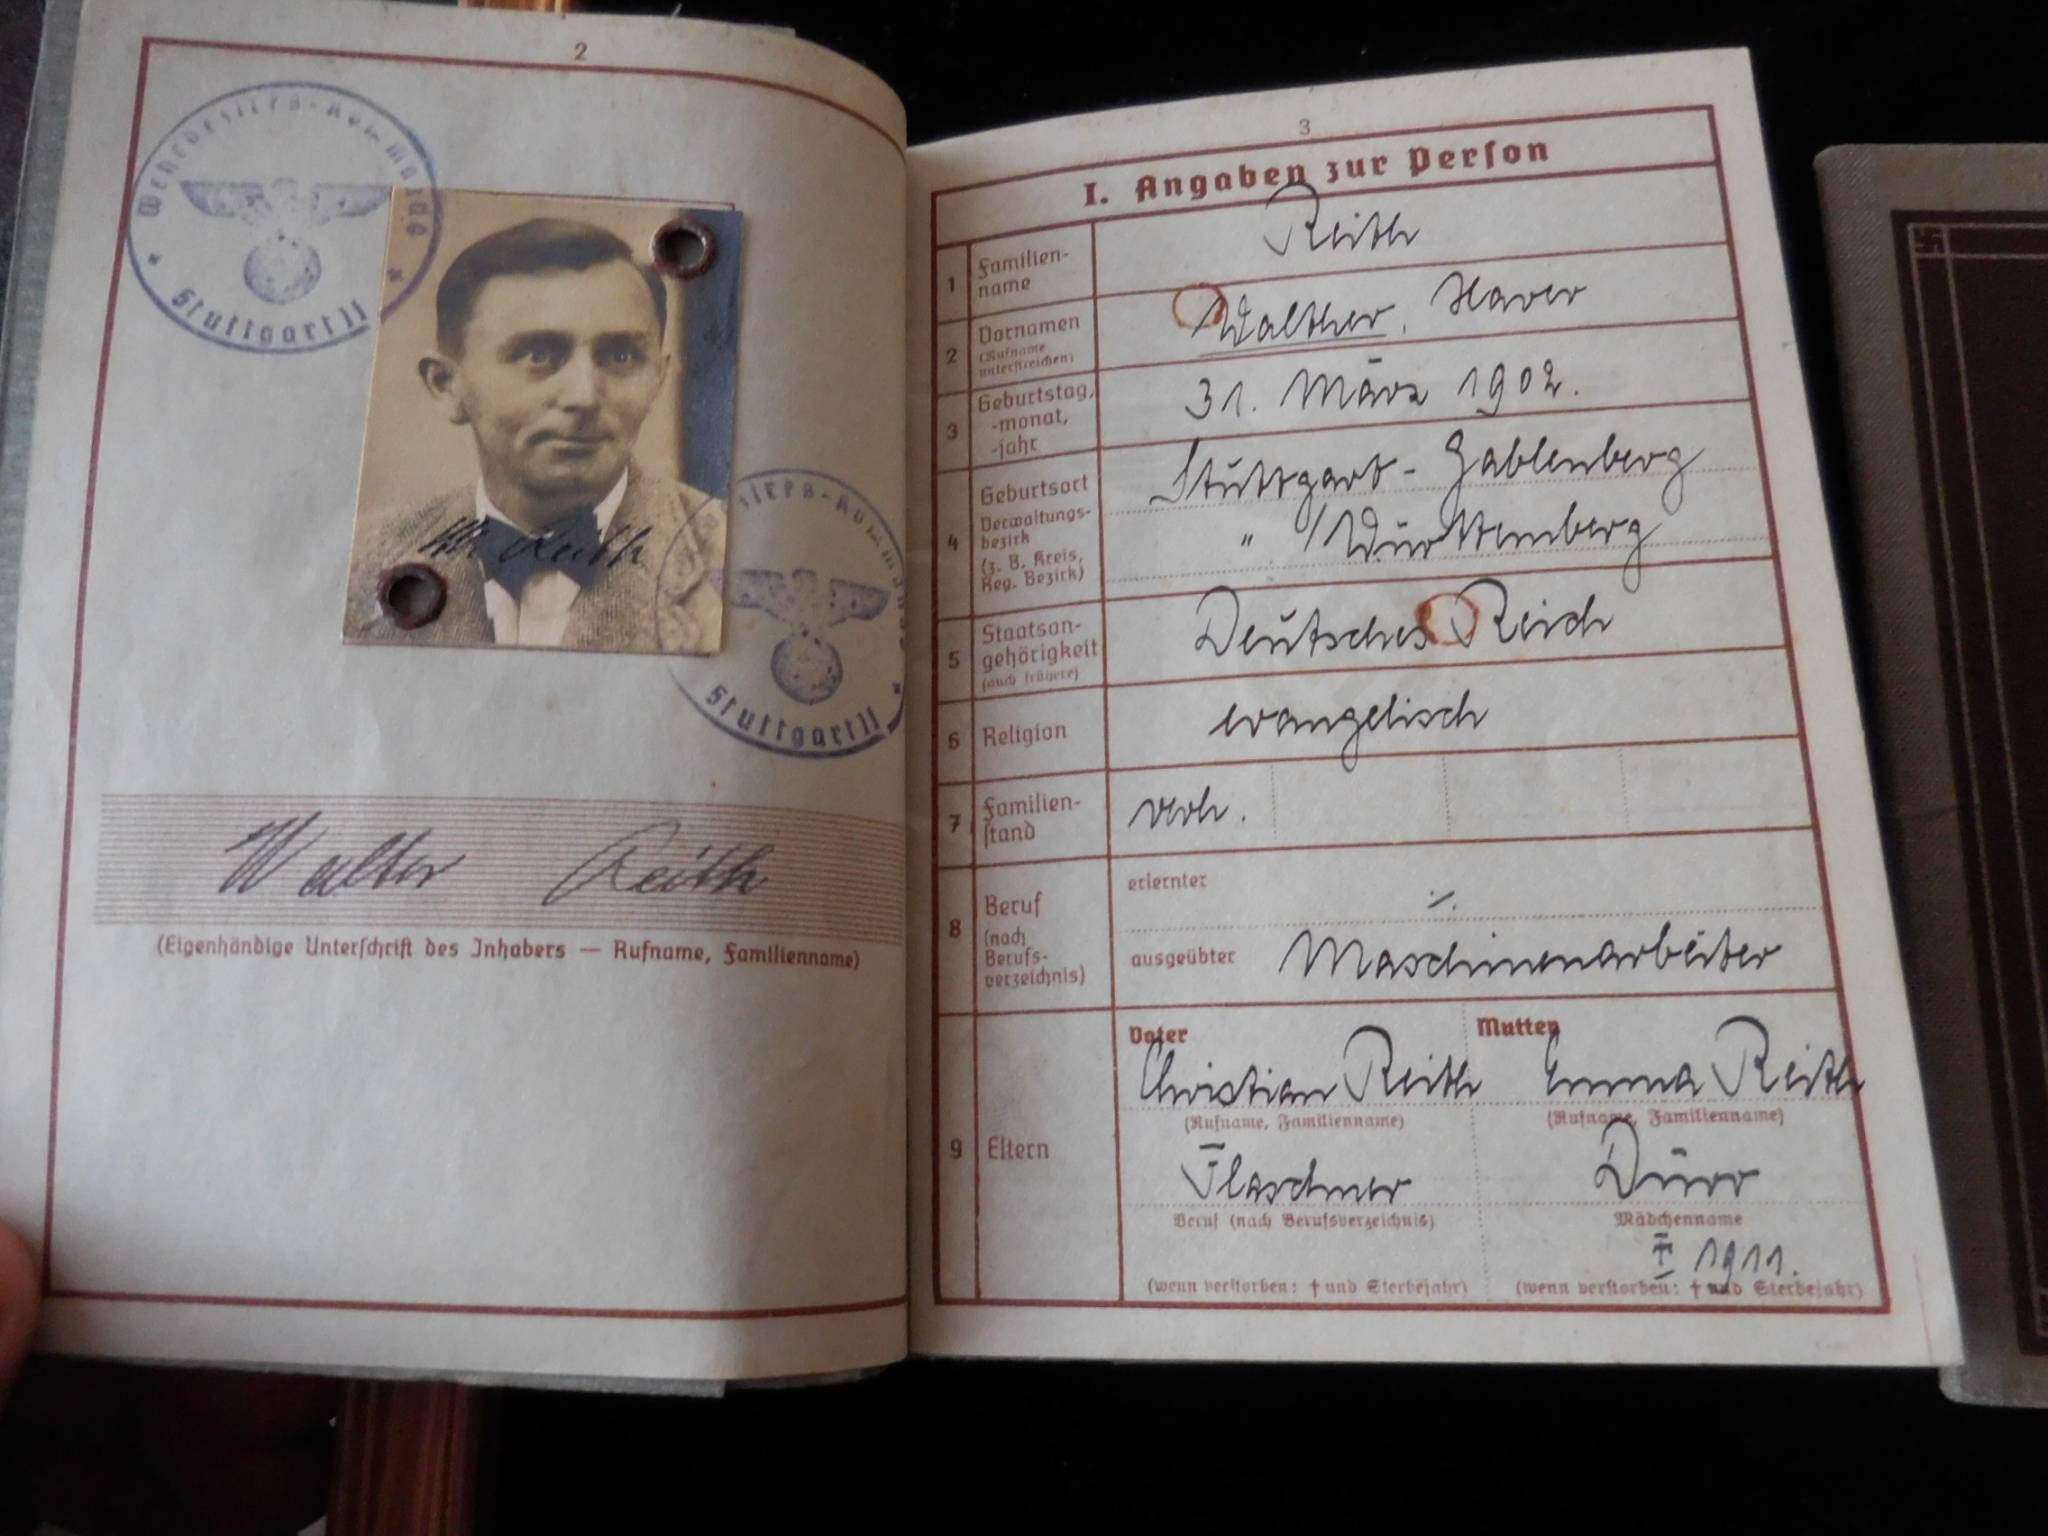 2
Wehrbezirks-Kommando
Stuttgart II
W. Reith
Wehrbezirks-Kommando
Stuttgart II
Walter Reith
(Eigenhändige Unterschrift des Inhabers — Rufname, Familienname)
3
I. Angaben zur Person
1 Familien-
name
Reith
2 Vornamen
(Rufname
unterstreichen)
Walther,
3 Geburtstag,
-monat,
-jahr
31. März 1902.
4 Geburtsort
Verwaltungs-
bezirk
(z. B. Kreis,
Reg. Bezirk)
Stuttgart-Gablenberg
" / Württemberg
5 Staatsan-
gehörigkeit
(auch frühere)
Deutsches Reich
6 Religion
evangelisch
7 Familien-
stand
verh.
8 Beruf
(nach
Berufs-
verzeichnis)
erlernter ./.
ausgeübter Maschinenarbeiter
9 Eltern
Vater Mutter
Christian Reith Emma Reith
(Rufname, Familienname) (Rufname, Familienname)
Flaschner Dürr
Beruf (nach Berufsverzeichnis) Mädchenname
† 1911.
(wenn verstorben: † und Sterbejahr) (wenn verstorben: † und Sterbejahr)